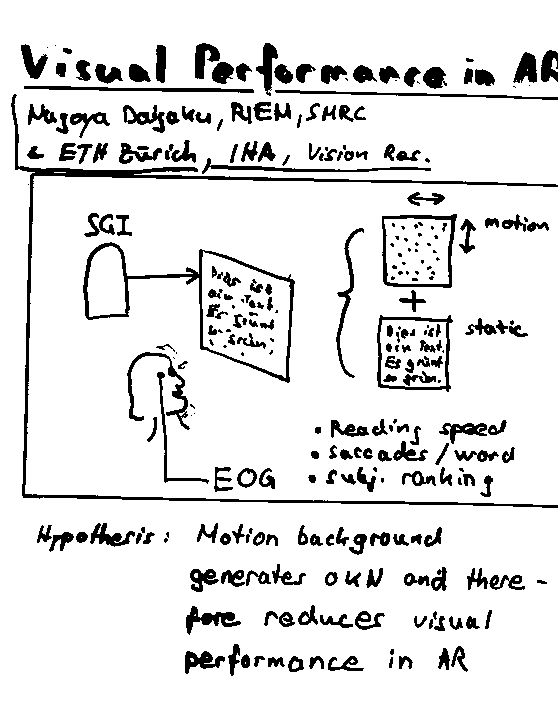 Visual Performance in AR
Nagoya Daigaku, RIEM, SMRC
& ETH Zürich, IHA, Vision Res.
SGI
Dies ist
ein Text.
Es grünt
so grün.
motion
+
static
Dies ist
ein Text.
Es grünt
so grün.
EOG
• Reading speed
• saccades / word
• subj. ranking
Hypothesis: Motion background
generates OKN and there-
fore reduces visual
performance in AR